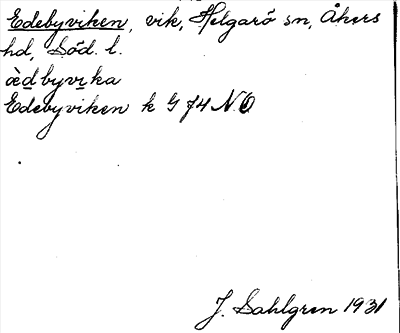 Edebyviken, vik, Helgarö sn, Åkers
hd, Söd. l.
ædbyvika
Edebyviken k G 74 N.O
J. Sahlgren 1931